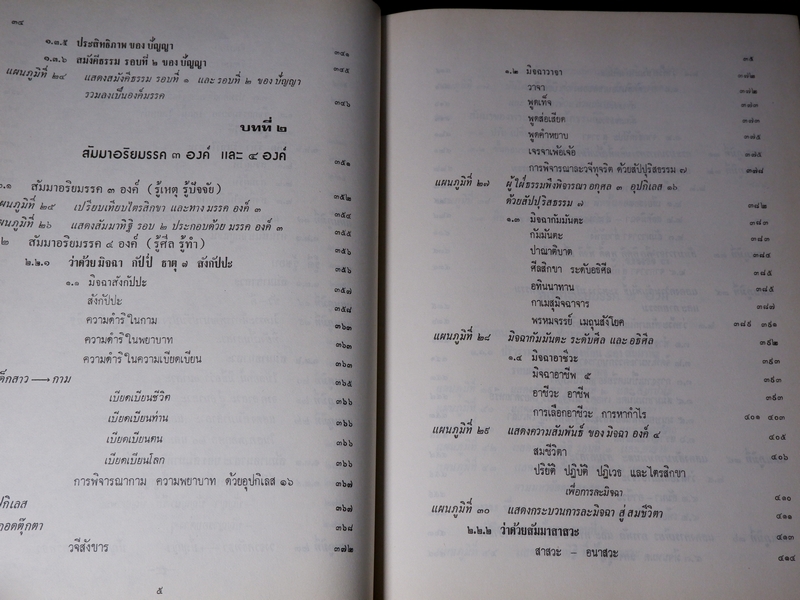 ๓๔
๑.๓.๕ ประสิทธิภาพ ของ ปัญญา ๓๔๑
๑.๓.๖ สมังคีธรรม รอบที่ ๒ ของ ปัญญา ๓๔๕
แผนภูมิที่ ๒๔ แสดงสมังคีธรรม รอบที่ ๑ และ รอบที่ ๒ ของ ปัญญา
รวมลงเป็นองค์มรรค ๓๔๖
บทที่ ๒
สัมมาอริยมรรค ๓ องค์ และ ๔ องค์ ๓๕๑
.๑ สัมมาอริยมรรค ๓ องค์ (รู้เหตุ รู้ปัจจัย) ๓๕๒
แผนภูมิที่ ๒๕ เปรียบเทียบไตรสิกขา และทาง มรรค องค์ ๓ ๓๕๔
แผนภูมิที่ ๒๖ แสดงสัมมาทิฐิ รอบ ๒ ประกอบด้วย มรรค องค์ ๓ ๓๕๕
๒ สัมมาอริยมรรค ๔ องค์ (รู้ศีล รู้ทำ) ๓๕๖
๒.๒.๑ ว่าด้วย มิจฉา กัปปิ ธาตุ ๗ สังกัปปะ ๓๕๖
๑.๑ มิจฉาสังกัปปะ ๓๕๗
สังกัปปะ ๓๕๘
ความดำริ ในกาม ๓๖๓
ความดำริ ในพยาบาท ๓๖๓
ความดำริ ในความเบียดเบียน ๓๖๓
ด็กสาว → กาม ๓๖๕
เบียดเบียนชีวิต ๓๖๖
เบียดเบียนท่าน ๓๖๖
เบียดเบียนตน ๓๖๖
เบียดเบียนโลก ๓๖๖
การพิจารณากาม ความพยาบาท ด้วยอุปกิเลส ๑๖ ๓๖๗
ปกิเลส ๓๖๗
กอดตุ๊กตา ๓๖๘
วจีสังขาร ๓๗๒
๕
๓๕
๑.๒ มิจฉาวาจา ๓๗๒
วาจา ๓๗๒
พูดเท็จ ๓๗๓
พูดส่อเสียด ๓๗๓
พูดคำหยาบ ๓๗๕
เจรจาเพ้อเจ้อ ๓๗๕
การพิจารณาละวจีทุจริต ด้วยสัปปุริสธรรม ๗ ๓๗๘
แผนภูมิที่ ๒๗ ผู้ใฝ่ธรรมพึงพิจารณา อกุศล ๓ อุปกิเลส ๑๖
ด้วยสัปปุริสธรรม ๗ ๓๘๒
๑.๓ มิจฉากัมมันตะ ๓๘๓
กัมมันตะ ๓๘๓
ปาณาติบาต ๓๘๔
ศีลสิกขา ระดับอธิศีล ๓๘๕
อทินนาทาน ๓๘๕
กาเมสุมิจฉาจาร ๓๘๗
พรหมจรรย์ เมถุนสังโยค ๓๘๙ ๓๙๑
แผนภูมิที่ ๒๘ มิจฉากัมมันตะ ระดับศีล และ อธิศีล ๓๙๒
๑.๔ มิจฉาอาชีวะ ๓๙๓
มิจฉาอาชีพ ๕ ๓๙๓
อาชีวะ อาชีพ ๓๙๓
การเลือกอาชีวะ การหากำไร ๔๐๑ ๔๐๓
แผนภูมิที่ ๒๙ แสดงความสัมพันธ์ ของ มิจฉา องค์ ๔ ๔๐๕
สมชีวิตา ๔๐๖
ปริยัติ ปฏิบัติ ปฏิเวธ และไตรสิกขา
เพื่อการละมิจฉา ๔๑๐
แผนภูมิที่ ๓๐ แสดงกระบวนการละมิจฉา สู่ สมชีวิตา ๔๑๑
๒.๒.๒ ว่าด้วยสัมมาสาสวะ ๔๑๓
สาสวะ - อนาสวะ ๔๑๔